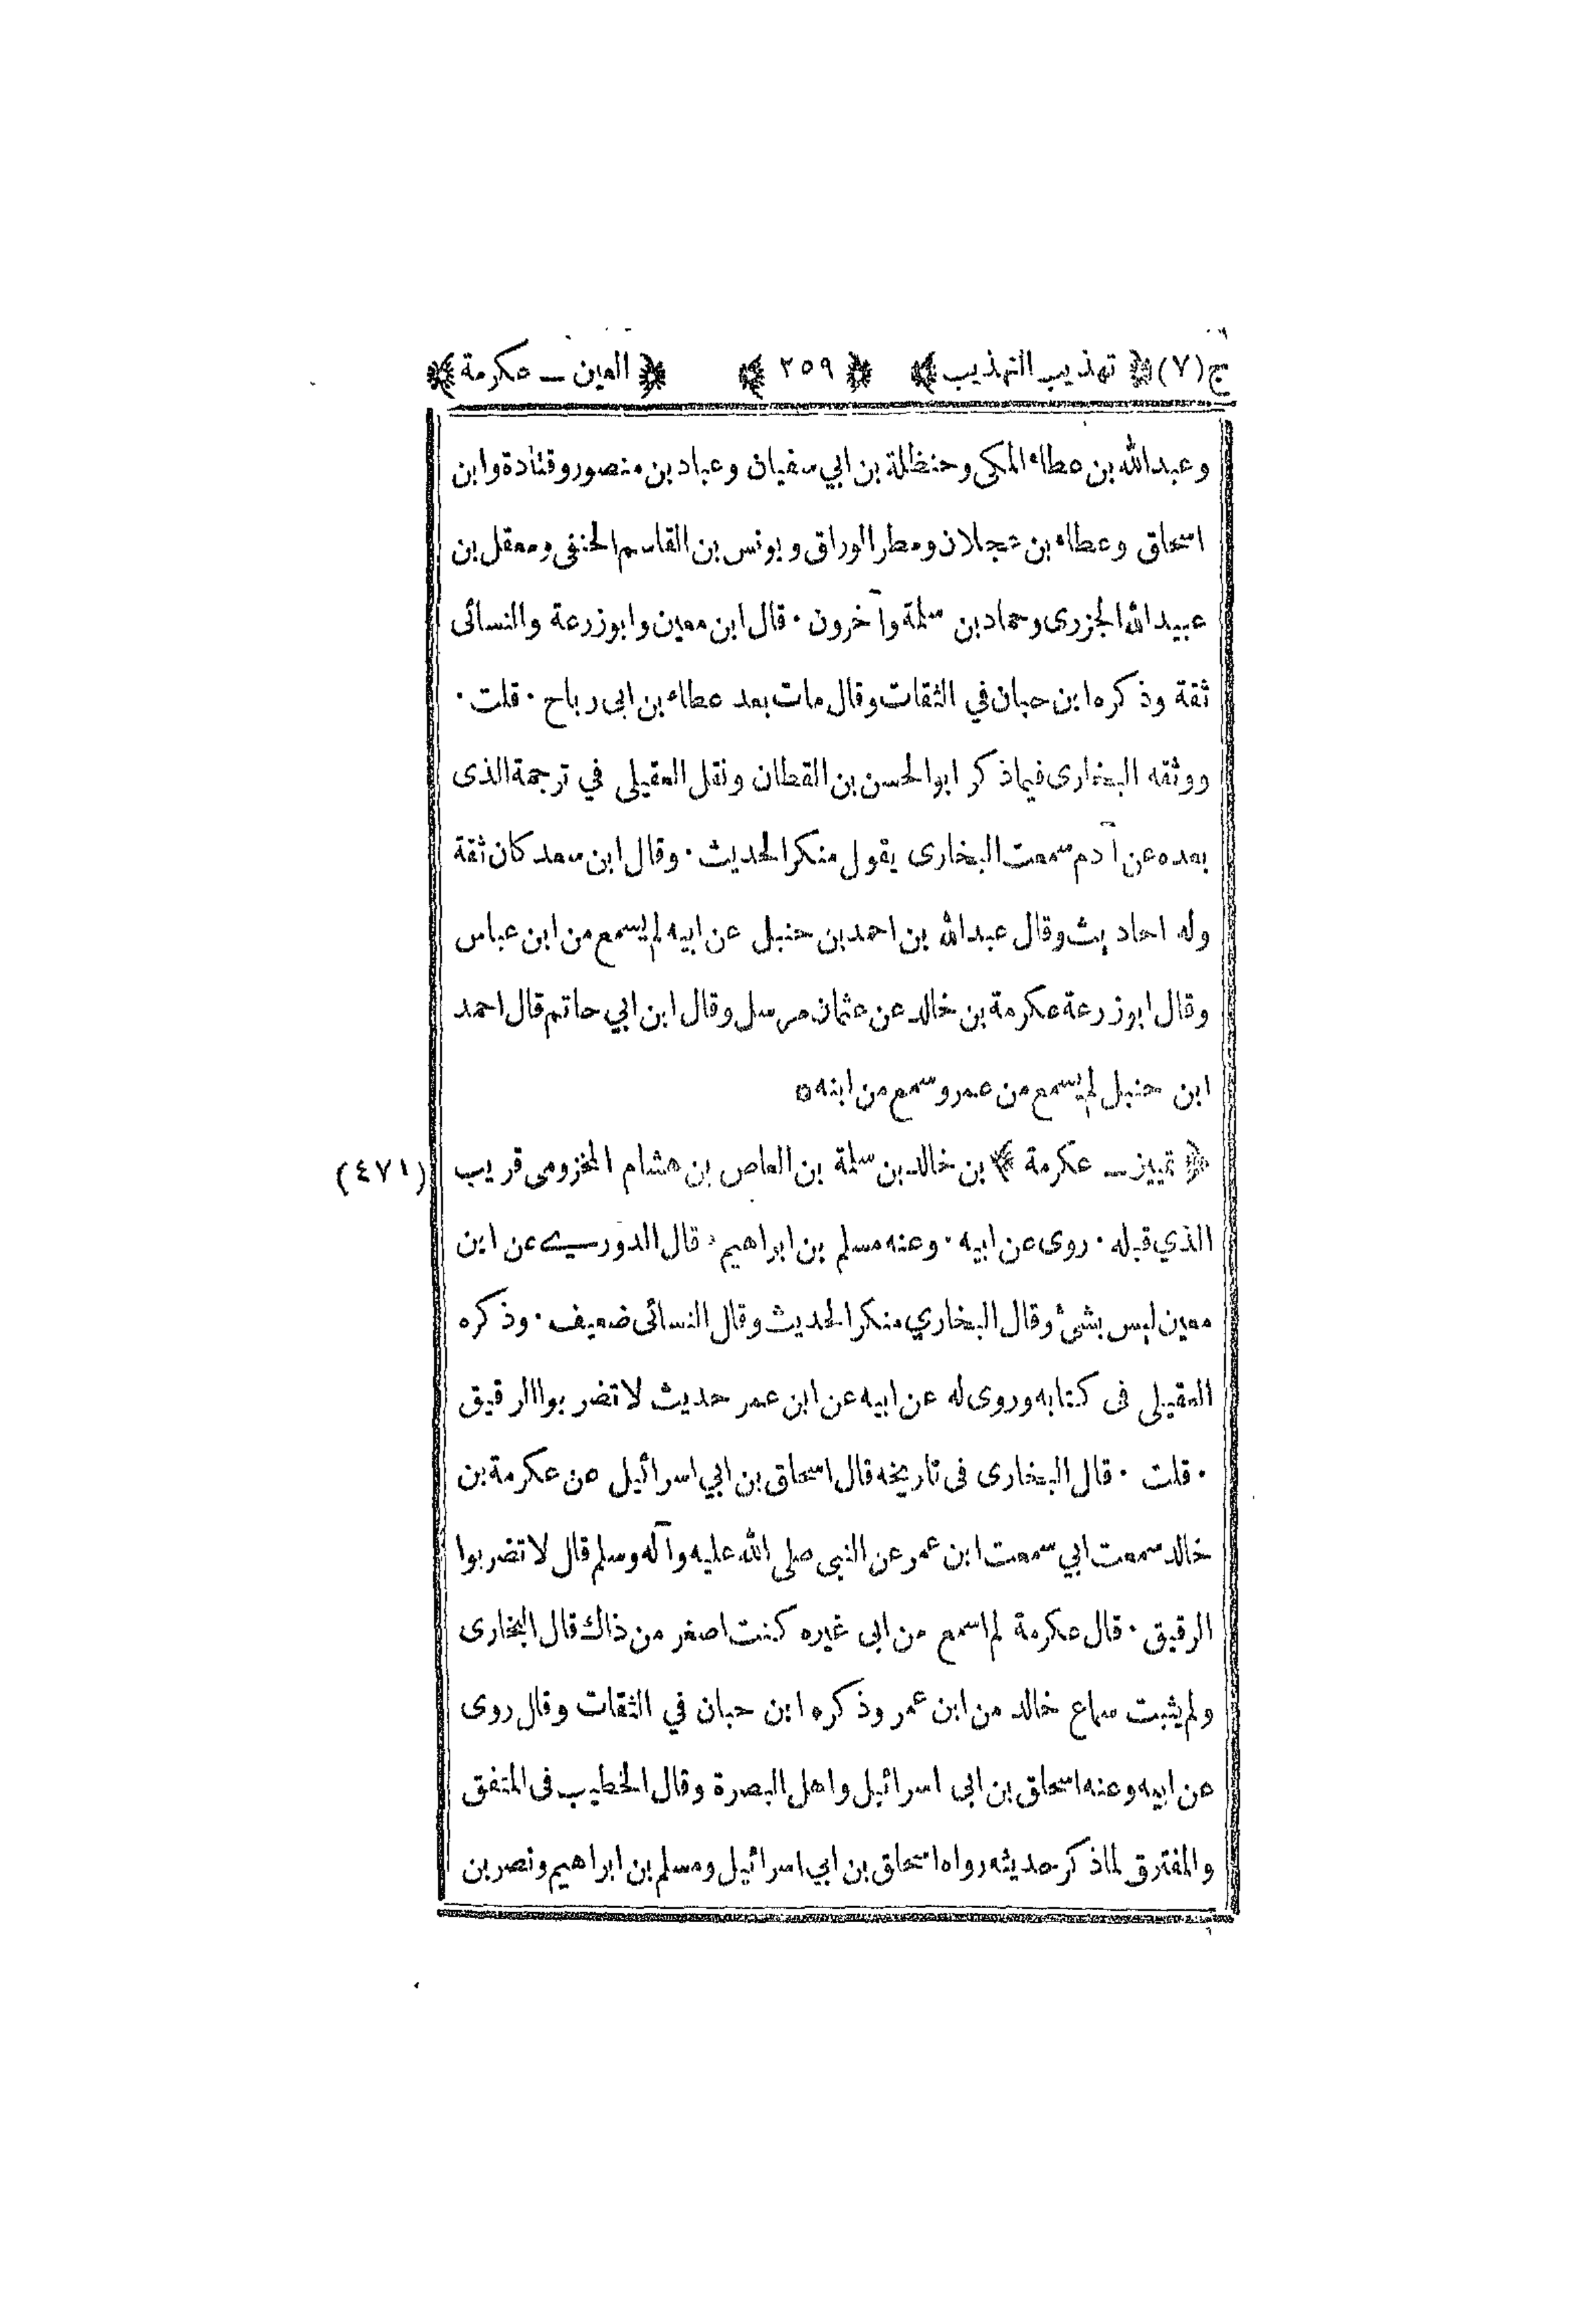 ج (٧) ﴿ تهذيب التهذيب ﴾ ﴿ ٢٥٩ ﴾ ﴿ العين ـ عكرمة ﴾
وعبدالله بن عطاء المكى وحنظلة بن ابي سفيان وعباد بن منصور وقتادة وابن
اسحاق وعطاء بن عجلان ومطر الوراق ويونس بن القاسم الحنفى ومعقل بن
عبيد الله الجزرى وحماد بن سلمة وآخرون · قال ابن معين وابوزرعة والنسائى
ثقة وذكره ابن حبان في الثقات وقال مات بعد عطاء بن ابى رباح · قلت ·
ووثقه البخارى فيما ذكر ابوالحسن بن القطان ونقل العقيلى في ترجمة الذى
بعده عن آدم سمعت البخارى يقول منكر الحديث · وقال ابن سعد كان ثقة
وله احاديث وقال عبدالله بن احمد بن حنبل عن ابيه لم يسمع من ابن عباس
وقال ابوزرعة عكرمة بن خالد عن عثمان مرسل وقال ابن ابي حاتم قال احمد
ابن حنبل لم يسمع من عمر وسمع من ابنه ٥
﴿ تمييز ـ عكرمة ﴾ بن خالد بن سلمة بن العاص بن هشام المخزومى قريب
(٤٧١)
الذي قبله · روى عن ابيه · وعنه مسلم بن ابراهيم · قال الدوري عن ابن
معين ليس بشئ وقال البخاري منكر الحديث وقال النسائى ضعيف · وذكره
العقيلى فى كتابه وروى له عن ابيه عن ابن عمر حديث لا تضربوا الرقيق
· قلت · قال البخارى فى تاريخه قال اسحاق بن ابي اسرائيل عن عكرمة بن
خالد سمعت ابي سمعت ابن عمر عن النبى صلى الله عليه وآله وسلم قال لا تضربوا
الرقيق · قال عكرمة لم اسمع من ابى غيره كنت اصغر من ذاك قال البخارى
ولم يثبت سماع خالد من ابن عمر وذكره ابن حبان في الثقات وقال روى
عن ابيه وعنه اسحاق بن ابى اسرائيل واهل البصرة وقال الخطيب فى المتفق
والمفترق لما ذكر حديثه رواه اسحاق بن ابي اسرائيل ومسلم بن ابراهيم ونصر بن